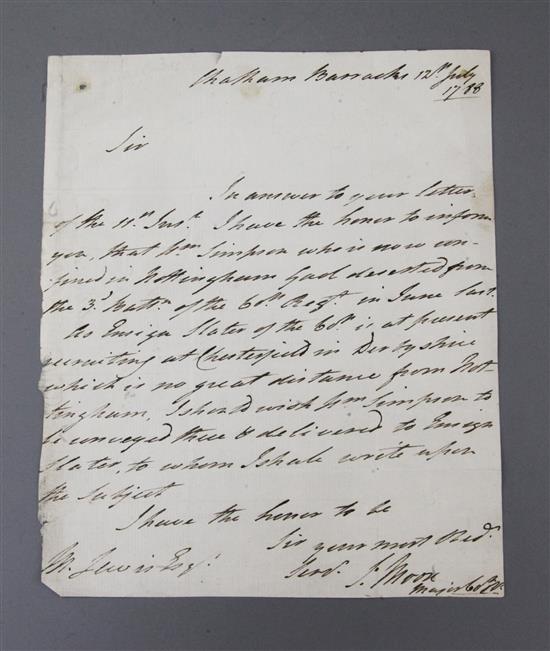 Chatham Barracks 12th July
1788
Sir
In answer to your letter
of the 11th Inst. I have the honor to inform
you, that Wm Simpson who is now con-
fined in Nottingham Gaol deserted from
the 3d Battn of the 60th Regt in June last.
As Ensign Slater of the 60th is at present
recruiting at Chesterfield in Derbyshire
which is no great distance from Not-
tingham, I shod wish Wm Simpson to
be conveyed there & delivered to Ensign
Slater, to whom I shall write upon
the Subject
I have the honor to be
Sir your most Obed.
Servt. J. Moore
M. Lewis Esqr. Major 60th